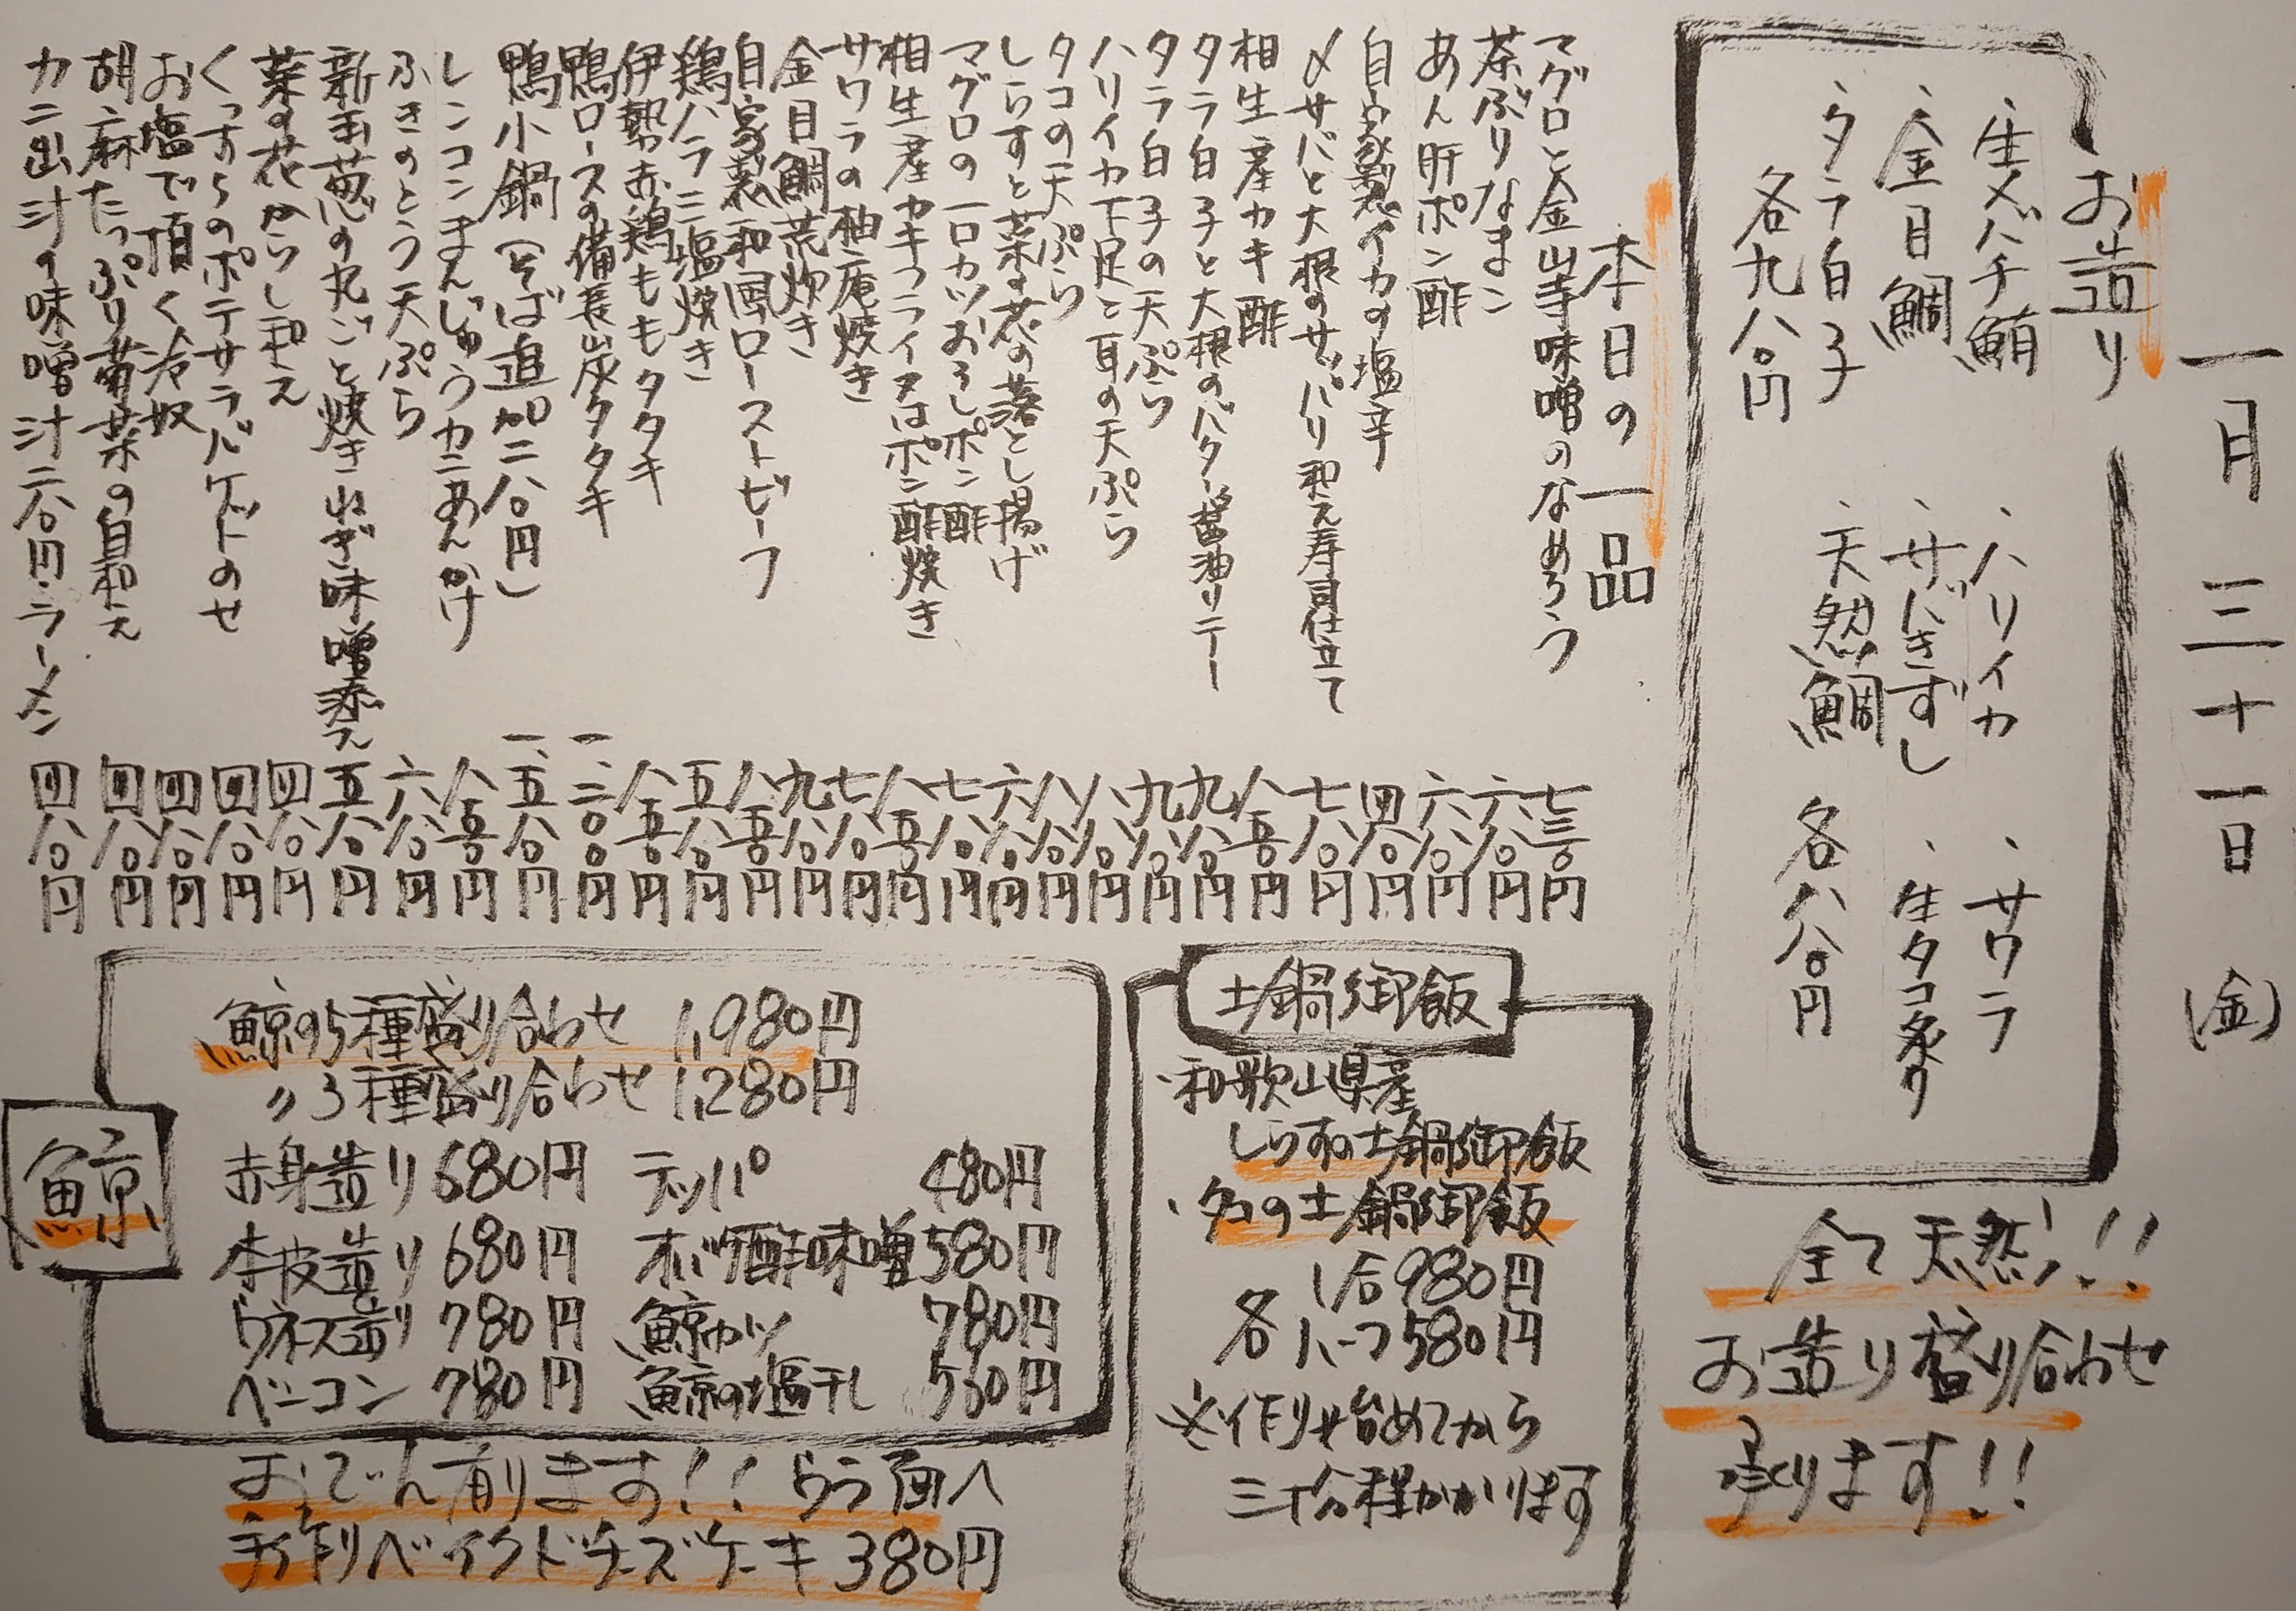 一月三十一日(金)
お造り
・生メバチ鮪
・金目鯛
・タラ白子
各九八〇円
・ハリイカ
・サバきずし
・天然鯛
・サワラ
・生タコ炙り
各八八〇円
全て天然!!
お造り盛り合わせ
承ります!!
本日の一品
マグロと金山寺味噌のなめろう 七三〇円
茶ぶりなまこ 六八〇円
あん肝ポン酢 六八〇円
自家製イカの塩辛 四八〇円
〆サバと大根のサッパリ和え寿司仕立て 七八〇円
相生産カキ酢 八五〇円
タラ白子と大根のバター醤油ソテー 九八〇円
タラ白子の天ぷら 九八〇円
ハリイカ下足と耳の天ぷら 八八〇円
タコの天ぷら 八八〇円
しらすと菜の花の落とし揚げ 六八〇円
マグロの一口カツおろしポン酢 七八〇円
相生産カキフライ又はポン酢焼き 八五〇円
サワラの柚庵焼き 七八〇円
金目鯛荒炊き 九八〇円
自家製和風ローストビーフ 八五〇円
鶏ハラミ塩焼き 五八〇円
伊勢赤鶏ももタタキ 八五〇円
鴨ロースの備長炭タタキ 一、二〇〇円
鴨小鍋(そば追加二八〇円) 一、五八〇円
レンコンまんじゅうカニあんかけ 八五〇円
ふきのとう天ぷら 六八〇円
新玉葱の丸ごと焼きねぎ味噌添え 五八〇円
菜の花からし和え 四八〇円
くっすらのポテサラバケットのせ 四八〇円
お塩で頂く冷奴 四八〇円
胡麻たっぷり菊菜の白和え 四八〇円
カニ出汁の味噌汁二八〇円・ラーメン 四八〇円
土鍋御飯
・和歌山県産
しらすの土鍋御飯
・タコの土鍋御飯
各 1合980円
ハーフ580円
※作り始めてから
三十分程かかります
鯨
鯨の5種盛り合わせ 1,980円
〃3種盛り合わせ 1,280円
赤身造り 680円 テッパ 480円
本皮造り 680円 オバケ酢味噌 580円
ウネス造り 780円 鯨カツ 780円
ベーコン 780円 鯨の塩干し 530円
おでん有ります!!ウラ面へ
手作りベイクドチーズケーキ380円